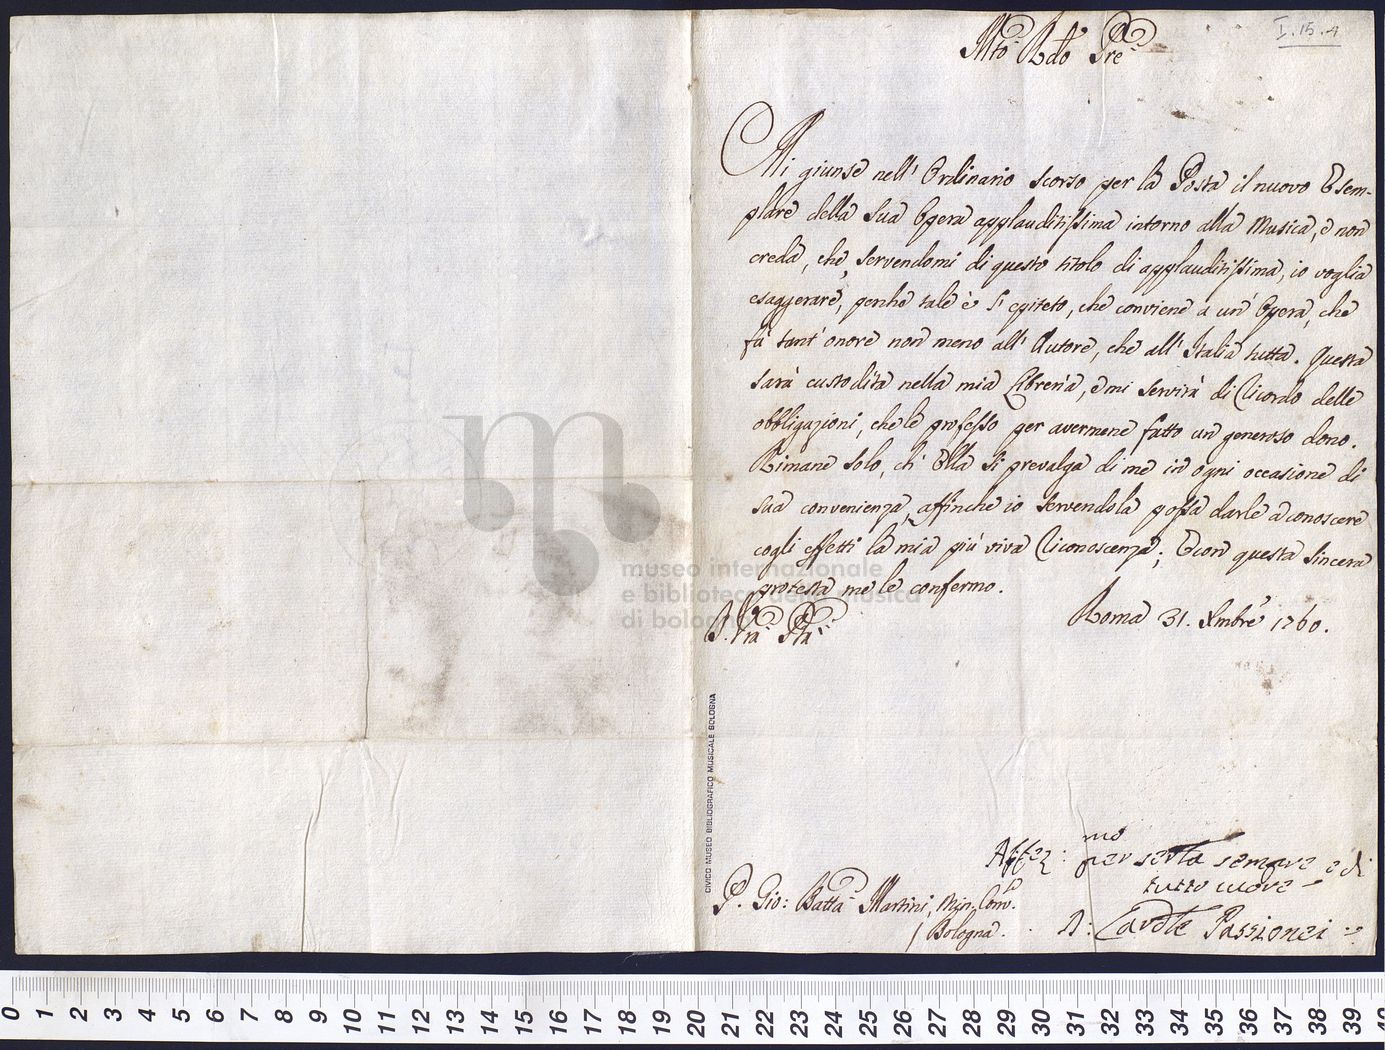 I. 15. 4
Mto Rdo Pre
Mi giunse nell' Ordinario scorso per la Posta il nuovo Esem-
plare della sua Opera applauditissima intorno alla Musica, e non
creda, che, servendomi di questo titolo di applauditissima, io voglia
esaggerare, perche tale è l' epiteto, che conviene a un' Opera, che
fà tant' onore non meno all' Autore, che all' Italia tutta. Questa
sarà custodita nella mia Libreria, e mi servirà di Ricordo delle
obbligazioni, che le professo per avermene fatto un generoso dono.
Rimane solo, ch' Ella si prevalga di me in ogni occasione di
sua convenienza, affinche io servendola possa darle a conoscere
cogli effetti la mia più viva Riconoscenza; E con questa sincera
protesta me le confermo.
Roma 31. Xmbre 1760.
Affez:mo per serla sempre e di
tutto cuore
P. Gio: Batta Martini, Min. Conv.
/ Bologna.
D: Card.le Passionei
museo internazionale
e biblioteca della musica
di bologna
CIVICO MUSEO BIBLIOGRAFICO MUSICALE BOLOGNA
0 1 2 3 4 5 6 7 8 9 10 11 12 13 14 15 16 17 18 19 20 21 22 23 24 25 26 27 28 29 30 31 32 33 34 35 36 37 38 39 40